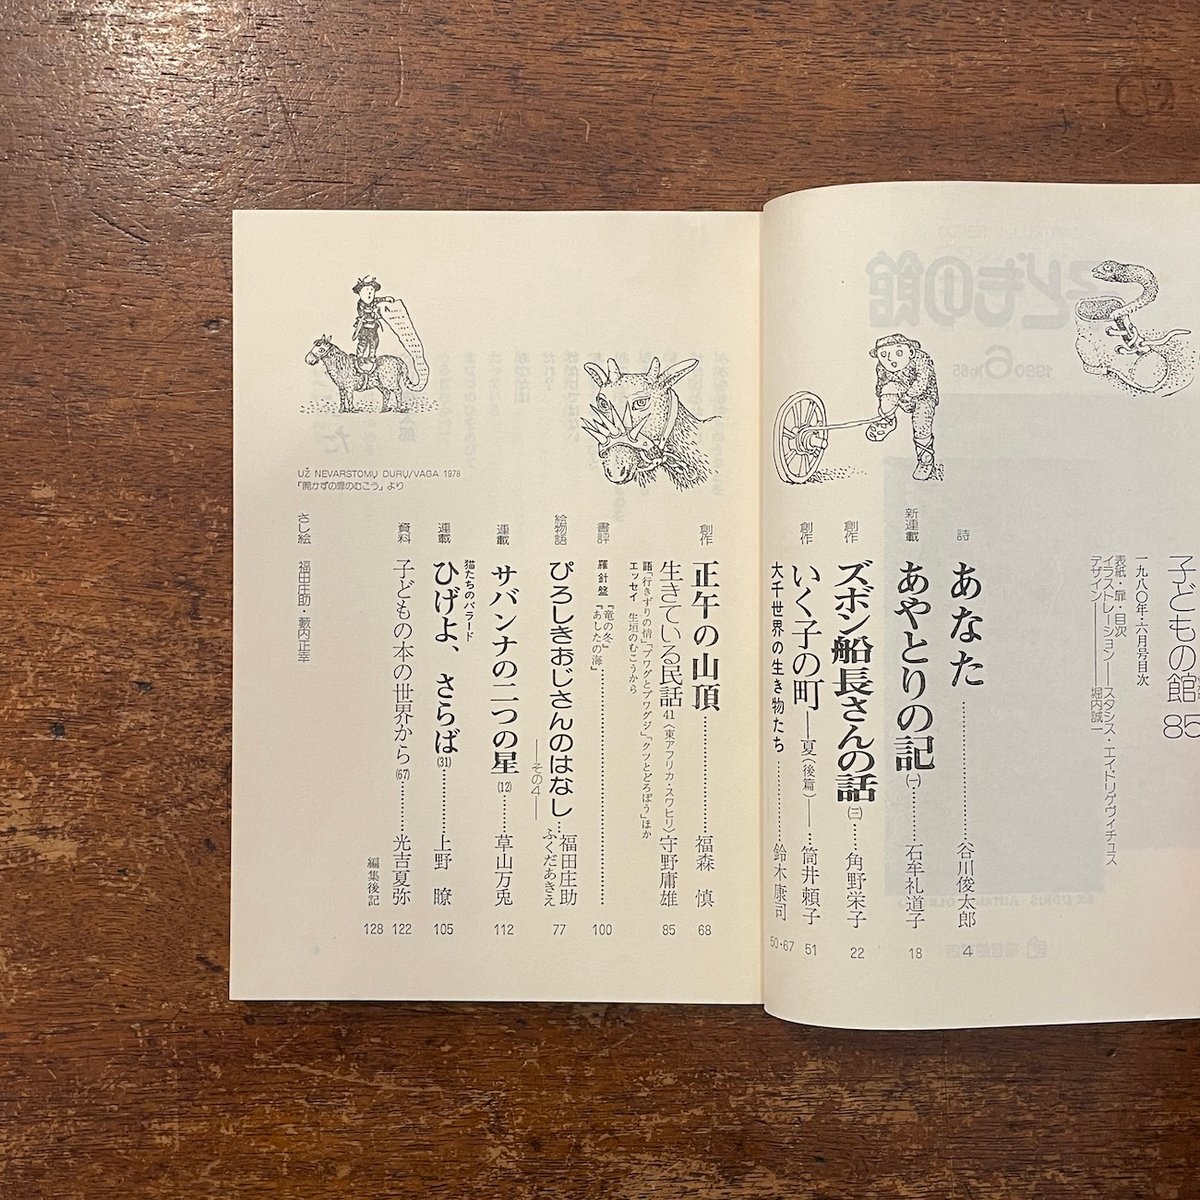 子どもの館 85
一九八〇年・六月号目次
表紙・扉・目次
イラストレーション――スタシス・エイドリゲヴィチュス
デザイン――堀内誠一
詩 あなた………谷川俊太郎 4
新連載 あやとりの記(一)……石牟礼道子 18
創作 ズボン船長さんの話(三)……角野栄子 22
創作 いく子の町――夏(後篇)――……筒井頼子 51
大千世界の生き物たち………鈴木康司 50・67
創作 正午の山頂………福森 慎 68
生きている民話 41(東アフリカ・スワヒリ)守野庸雄 85
語「行きずりの情」「ブワグとブワグジ」「クツとどろぼう」ほか
エッセイ 生垣のむこうから
書評 羅針盤『竜の冬』『あしたの海』……… 100
絵物語 ぴろしきおじさんのはなし――その4――…福田庄助 ふくだあきえ 77
連載 サバンナの二つの星(12)……草山万兎 112
猫たちのバラード
連載 ひげよ、さらば(31)………上野 瞭 105
資料 子どもの本の世界から(67)……光吉夏弥 122
編集後記 128
さし絵 福田庄助・藪内正幸
UŽ NEVARSTOMŲ DURŲ/VAGA 1978
「開かずの扉のむこう」より